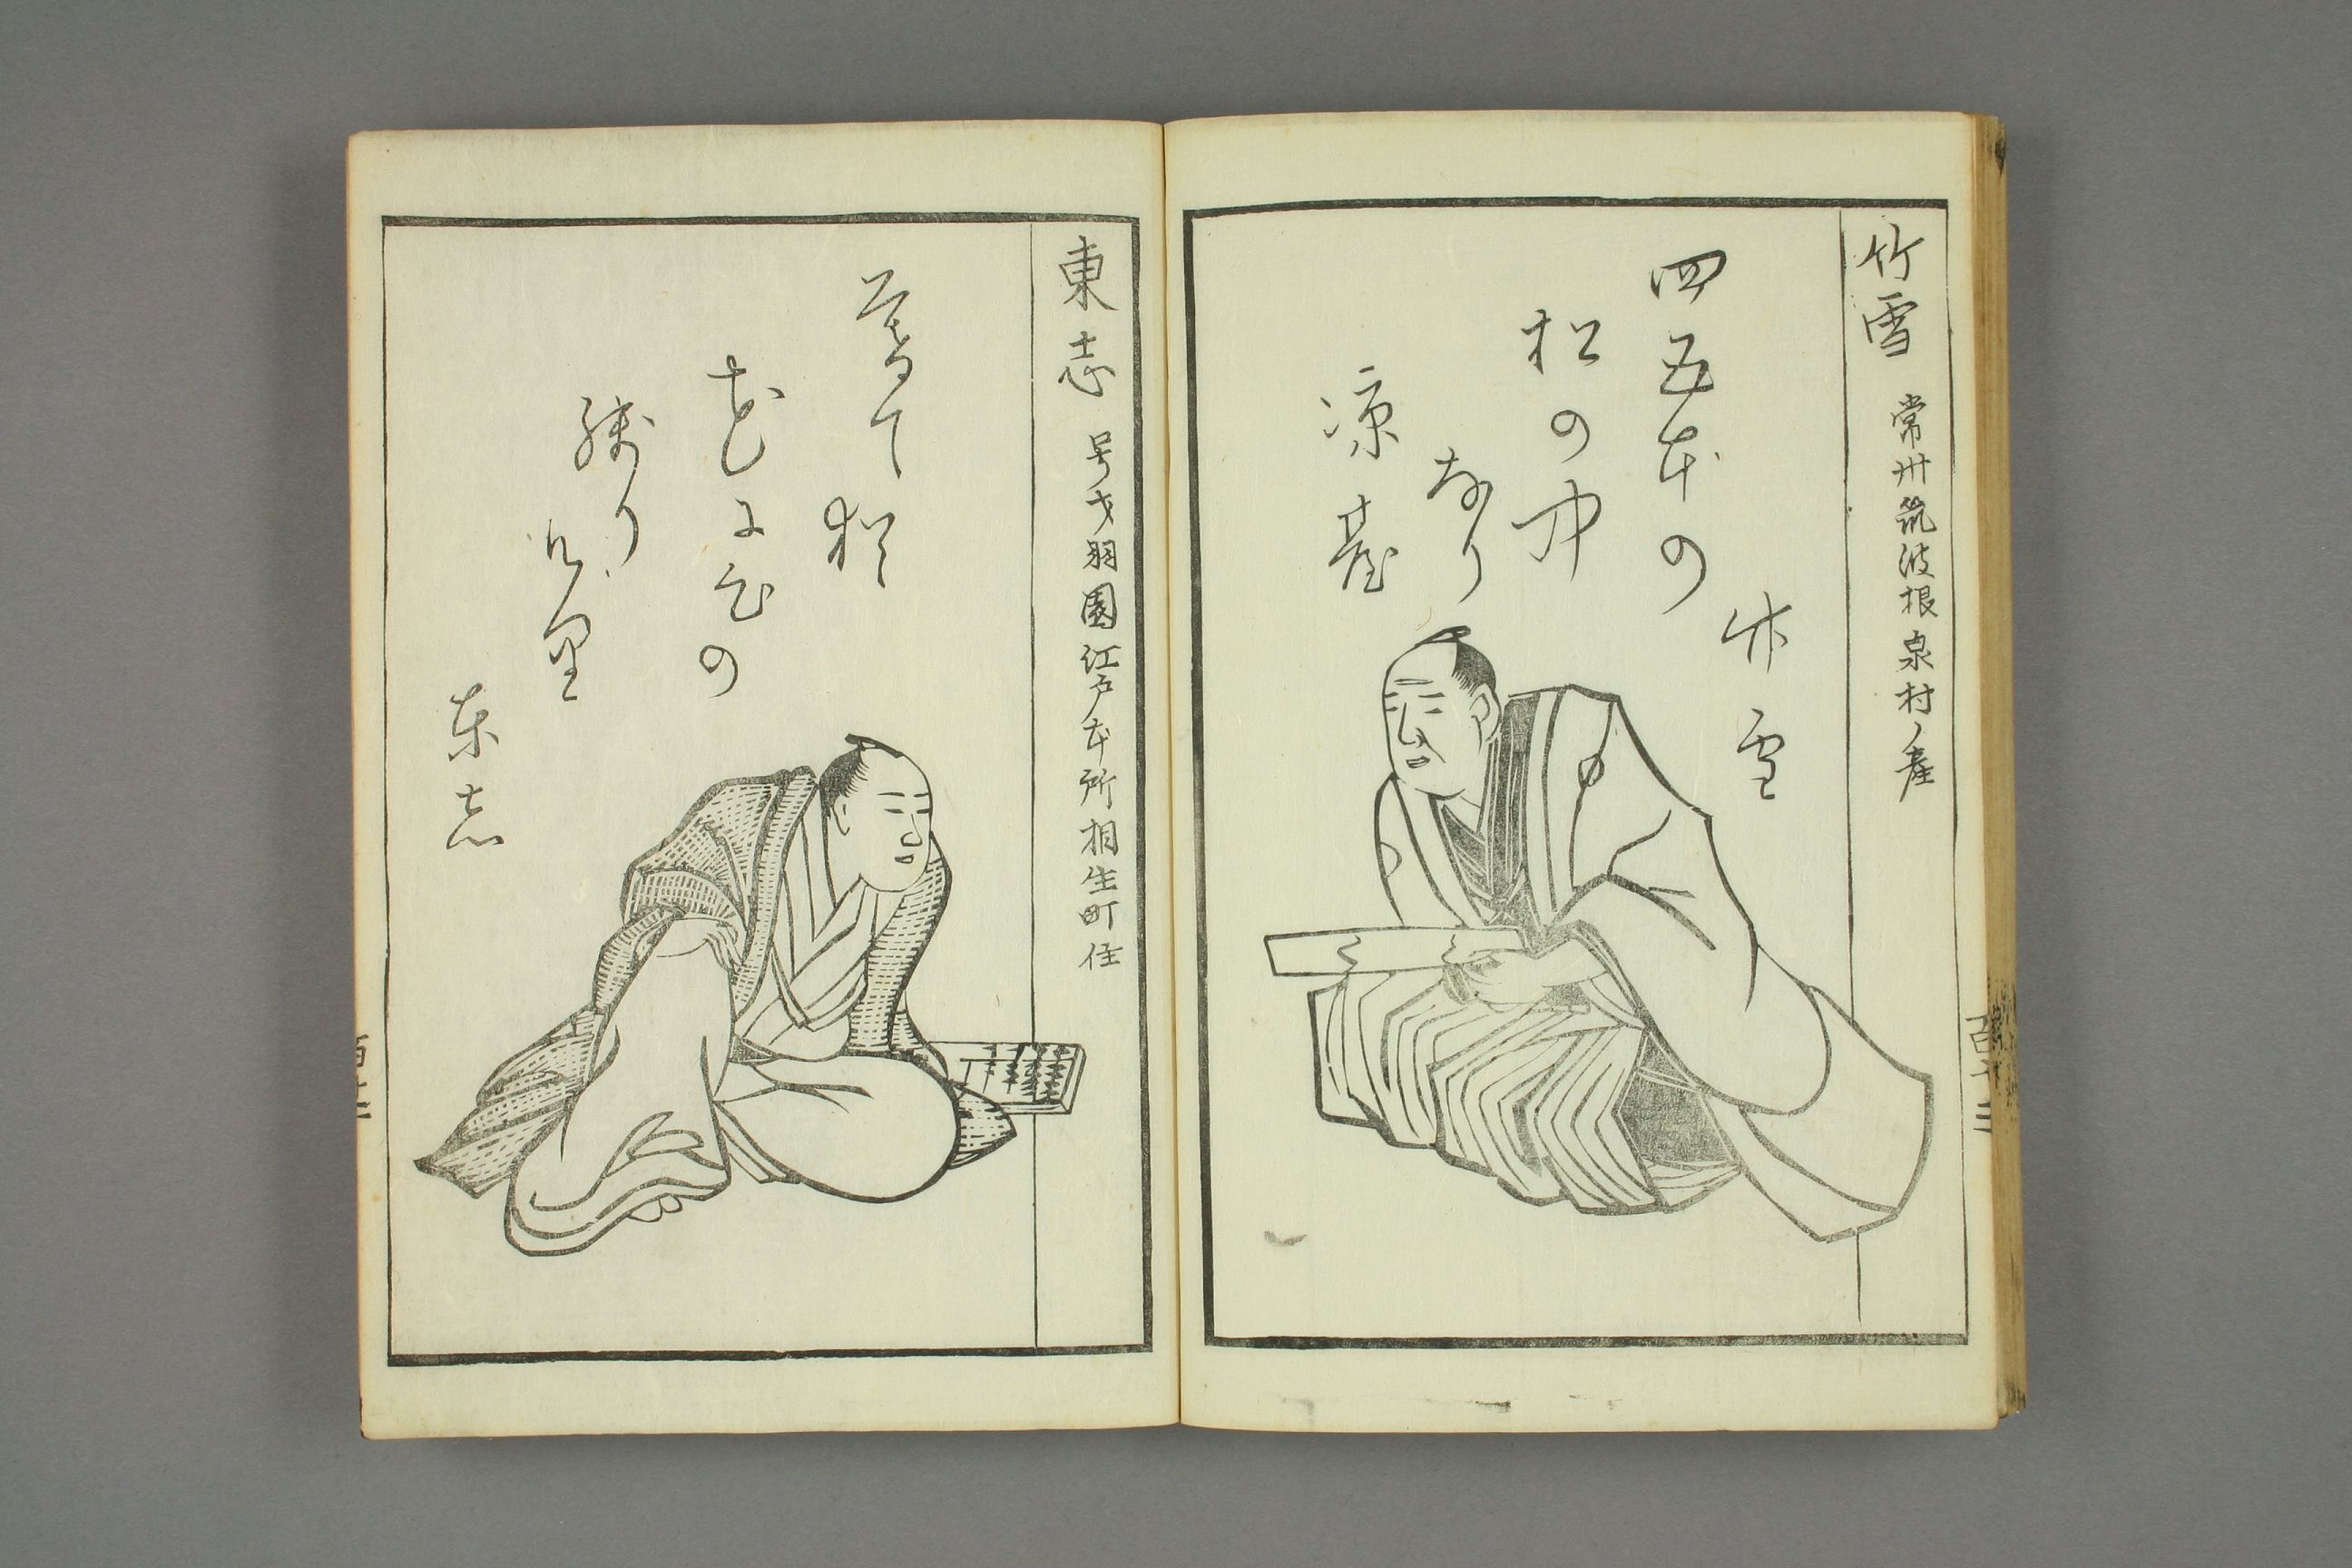 竹雪 常州筑波根泉村ノ産
竹雪
四五本の
松の中
なり
涼臺
東志 号戈羽園江戸本所相生町住
着て
花に色の
残り
東志
百七十三